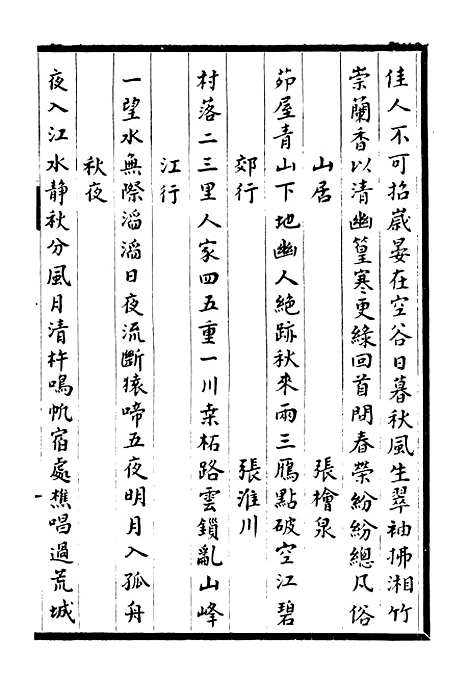 佳人不可招歲晏在空谷日暮秋風生翠袖拂湘竹
崇蘭香以清幽篁寒更綠回首問春榮紛紛總凡俗
山居　張檜泉
茆屋青山下地幽人絕跡秋來兩三鴈點破空江碧
郊行　張淮川
村落二三里人家四五重一川桒柘路雲鎖亂山峰
江行
一望水無際滔滔日夜流斷猿啼五夜明月入孤舟
秋夜
夜入江水靜秋分風月清杵鳴帆宿處樵唱過荒城